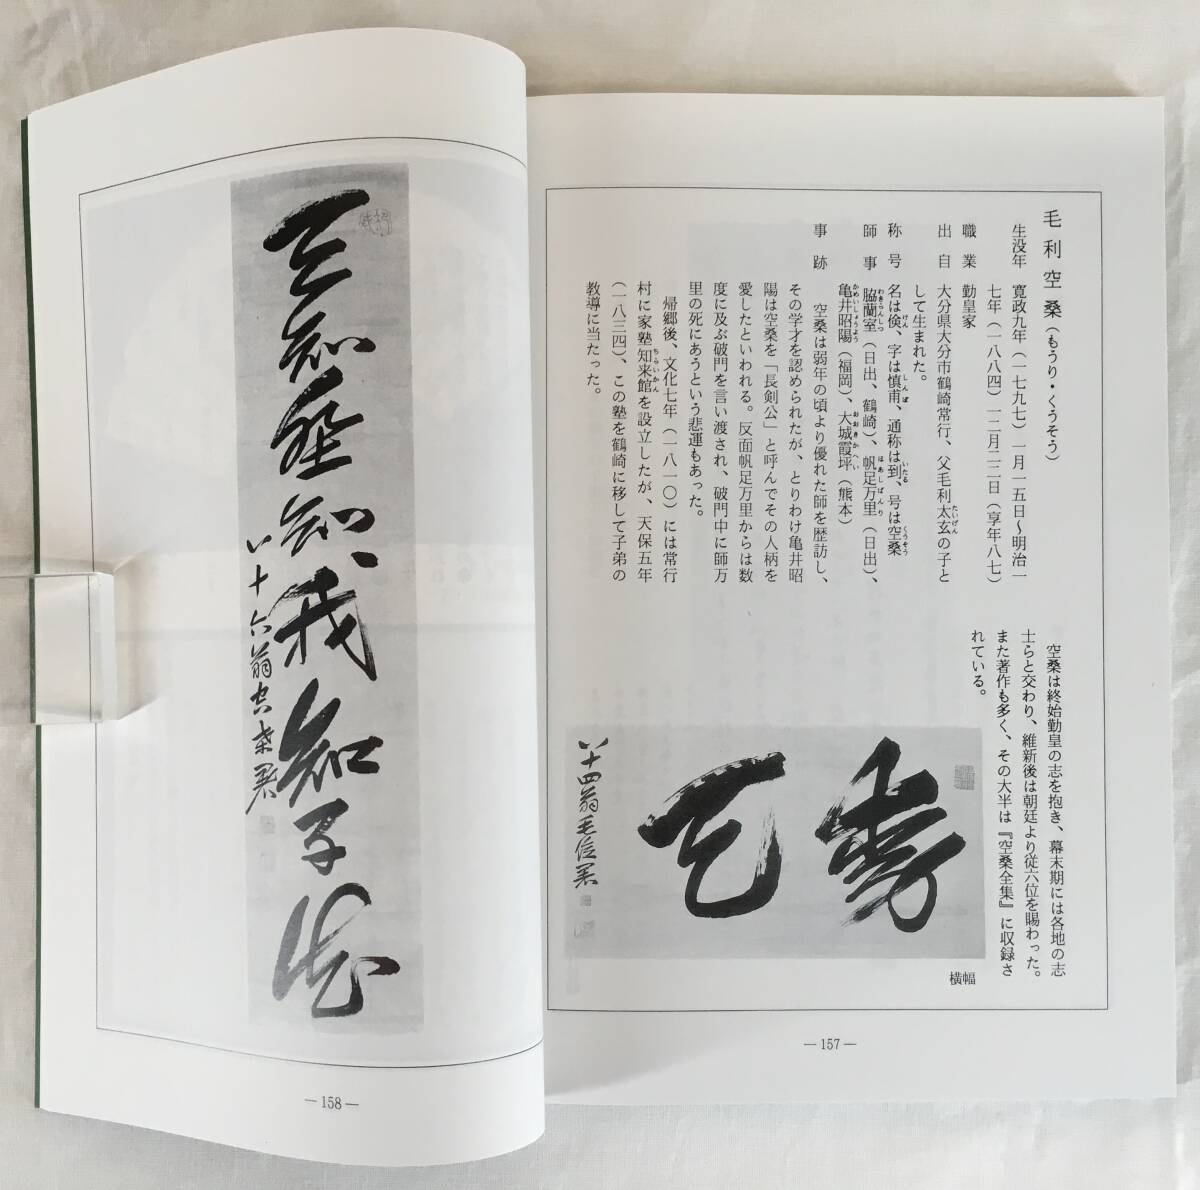 毛利空桑（もうり・くうそう）
生没年 寛政九年（一七九七）一月一五日～明治一
七年（一八八四）一二月二二日（享年八七）
職業 勤皇家
出自 大分県大分市鶴崎常行、父毛利太玄の子と
たいげん
して生まれた。
称号 名は倹、字は慎甫、通称は到、号は空桑
けん しんぽ いたる くうそう
師事 脇蘭室（日出、鶴崎）、帆足万里（日出）、
わきらんしつ ほあしばんり
亀井昭陽（福岡）、大城霞坪（熊本）
かめいしょうよう おおきかへい
事跡 空桑は弱年の頃より優れた師を歴訪し、
その学才を認められたが、とりわけ亀井昭
陽は空桑を「長剣公」と呼んでその人柄を
愛したといわれる。反面帆足万里からは数
度に及ぶ破門を言い渡され、破門中に師万
里の死にあうという悲運もあった。
帰郷後、文化七年（一八一〇）には常行
村に家塾知来館を設立したが、天保五年
ちらいかん
（一八三四）、この塾を鶴崎に移して子弟の
教導に当たった。
空桑は終始勤皇の志を抱き、幕末期には各地の志
士らと交わり、維新後は朝廷より従六位を賜わった。
また著作も多く、その大半は『空桑全集』に収録さ
れている。
八十四翁毛倹墨
横幅
— 157 —
天知地知我知子知
八十六翁空桑墨
— 158 —